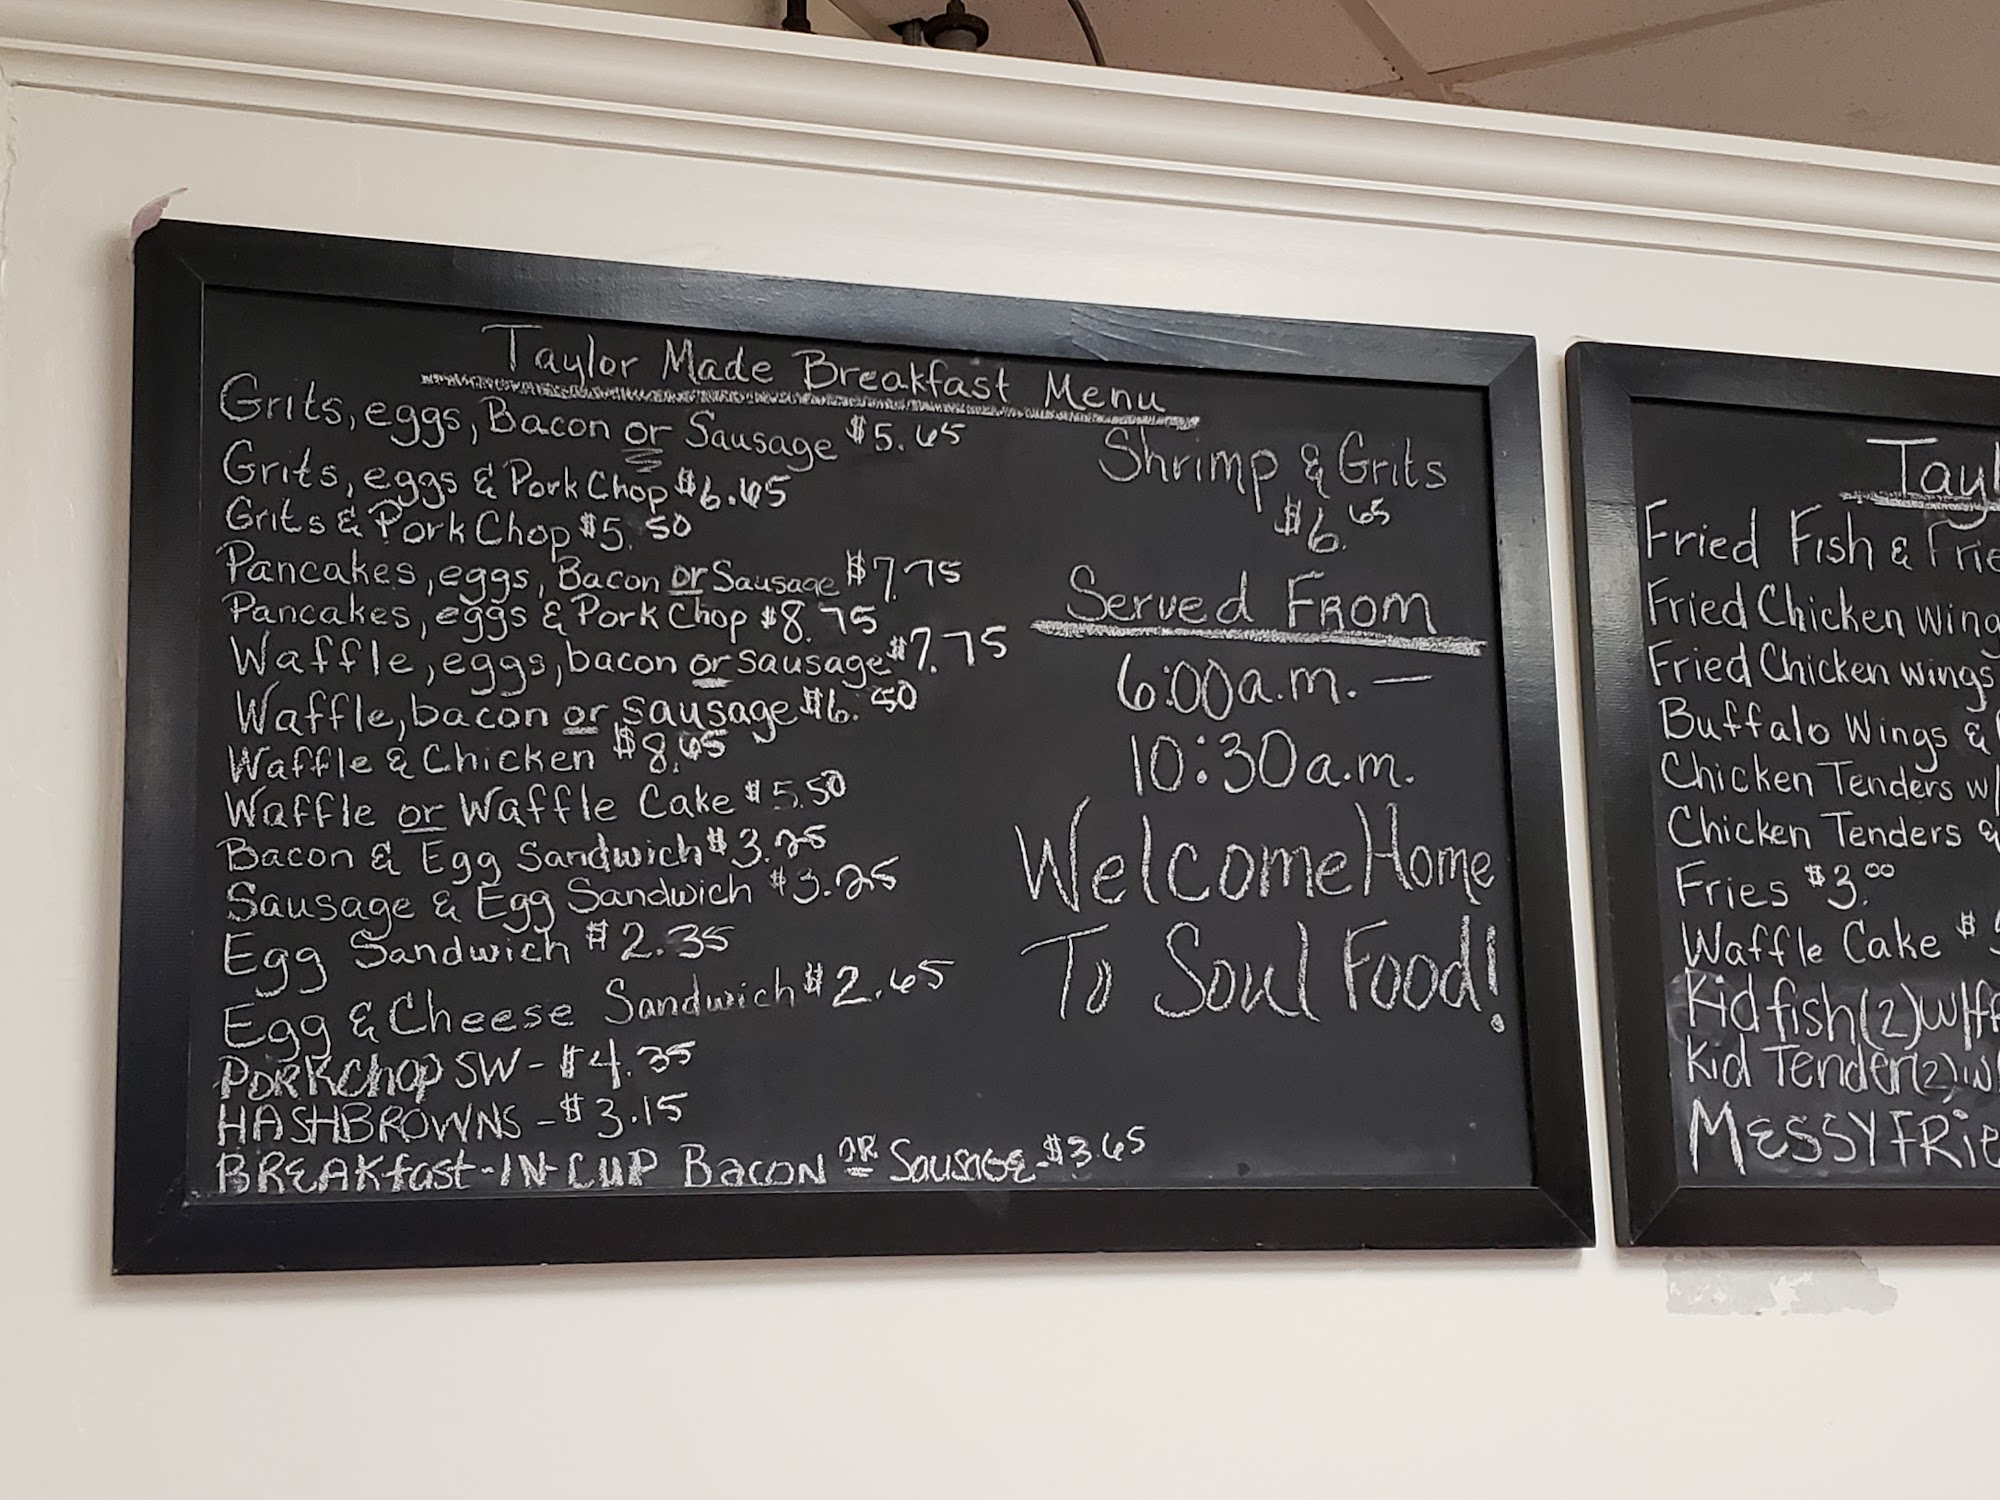 Taylor Made Breakfast Menu
Grits, eggs, Bacon or Sausage $5.65
Grits, eggs & Pork Chop $6.65
Grits & Pork Chop $5.50
Pancakes, eggs, Bacon or Sausage $7.75
Pancakes, eggs & Pork Chop $8.75
Waffle, eggs, bacon or sausage $7.75
Waffle, bacon or sausage $6.50
Waffle & Chicken $8.65
Waffle or Waffle Cake $5.50
Bacon & Egg Sandwich $3.25
Sausage & Egg Sandwich $3.25
Egg Sandwich $2.35
Egg & Cheese Sandwich $2.65
PORKChop SW - $4.35
HASHBROWNS - $3.15
BREAKfast-IN-CUP BACON OR SAUSAGE - $3.65
Shrimp & Grits
$6.65
Served From
6:00a.m. —
10:30a.m.
Welcome Home
To Soul Food!
Fried Fish &
Fried Chicken
Fried Chicken wings
Buffalo Wings &
Chicken Tenders w/
Chicken Tenders &
Fries $3.00
Waffle Cake $
Kid fish (2) w/
Kid Tender (2)
MESSY